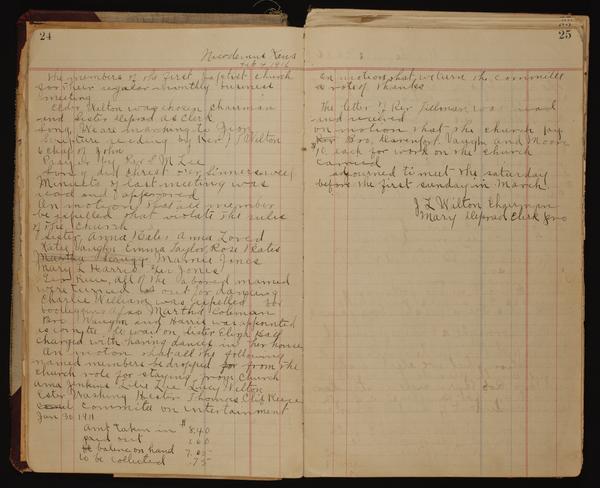 24
Nicodemus Kans
Feb 4 1916
The members of the First Baptist Church
for their regular monthly business
meeting
Elder Wilton was chosen chairman
and Sister Deprad as Clerk
Song We are marching to Zion
Scripture reading by Rev J L Wilton
6 chap of John
Prayer by Rev S M Lee
Song did Christ over sinners weep
Minutes of last meeting was
read and approved
On motion that all member
be expelled that violate the rules
of the Church
Sister Anna Bates Anna Loved
Katie Vaughn Emma Taylor Rose Bates
Martha Mabrie Jines
Mary L Harris Geo Jones
all of the above named
were turned out for dancing
Charlie William was expelled for
bootlegging also Martha Coleman
Bro Vaughn and Harris was appointed
as comitte to wait on Sister Eliza Ball
charged with having dances in her house
On motion that all the following
named members be droped for from the
church role for staying from Church
Anna Jenkins Lulu Lee Lucy Wilton
Ester Washing Hester Thomas Clif Reece
Committee on entertainment
Jan 30 1911
Amt taken in $ 8.40
paid out 1.60
baline on hand 7.05
to be collected .75
25
on motion that we turn the committee
a vote of thanks
The letter of Rev Tillman was read
and received
on motion that the church pay
Bro Davenport Vaughn and Moore
each for work on the church
carried
adjourned to meet the saturday
before the first sunday in March.
J L Wilton Chairman
Mary Deprad Clerk